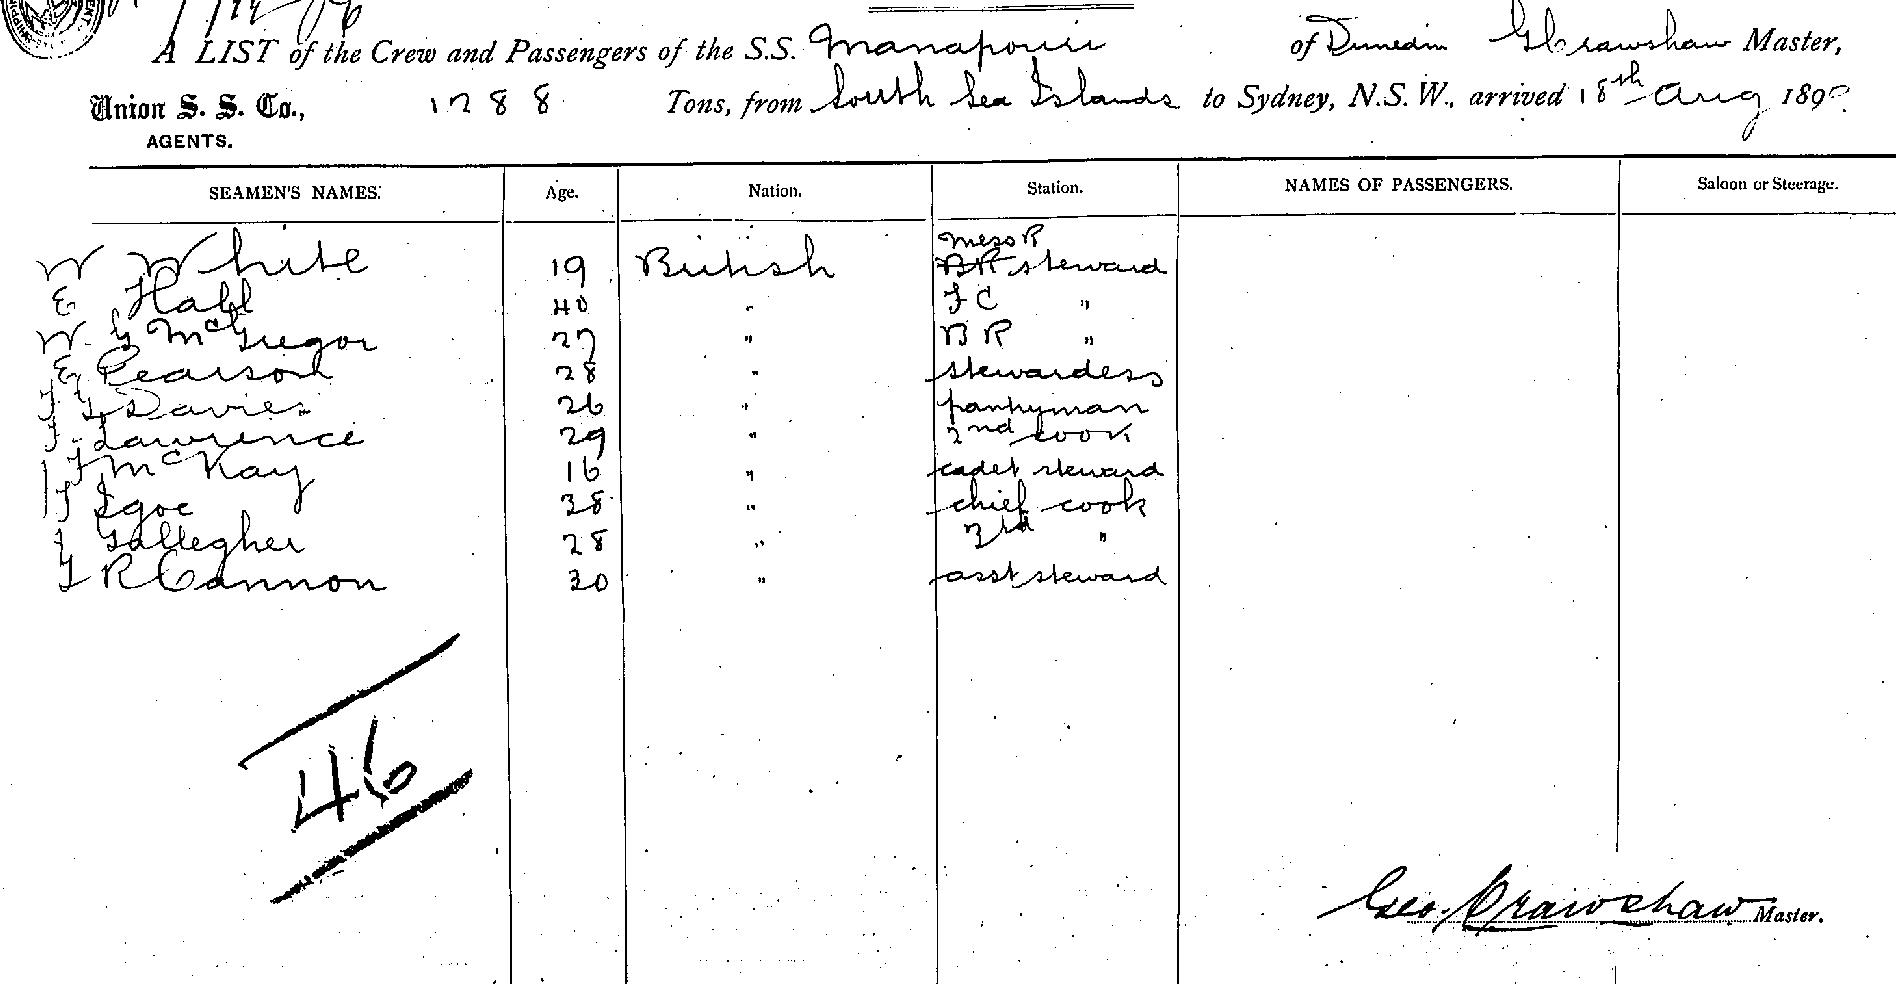 A LIST of the Crew and Passengers of the S.S. Manapouri of Dunedin G Crawshaw Master,
Union S. S. Co., 1288 Tons, from South Sea Islands to Sydney, N.S.W., arrived 18th Aug 189
AGENTS.
SEAMEN'S NAMES. Age. Nation. Station. NAMES OF PASSENGERS. Saloon or Steerage.
Mess R
W White 19 British BR steward
E Hall 40 " F C "
W. G McGregor 27 " B R "
E Pearson 28 " stewardess
Davies 26 " pantryman
Lawrence 29 " 2nd cook
McKay 16 " cadet steward
Igoe 38 " chief cook
Gallegher 28 " 3rd "
R Cannon 30 " asst steward
46
Geo. Crawshaw Master.